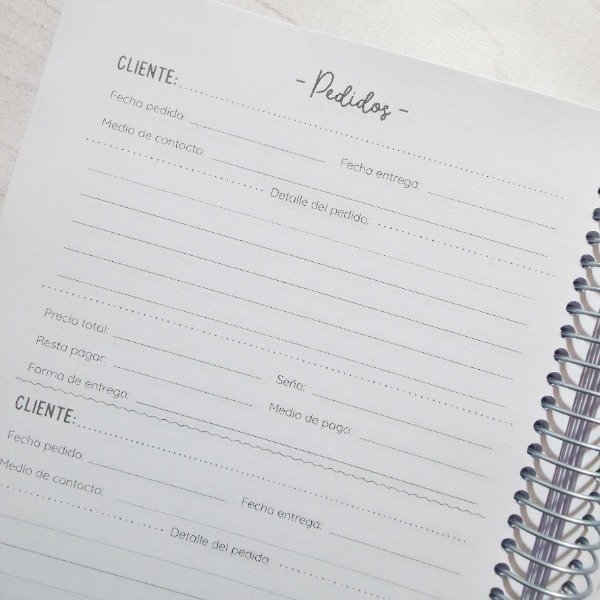 - Pedidos -
CLIENTE:
Fecha pedido: Fecha entrega:
Medio de contacto:
Detalle del pedido:
Precio total: Seña:
Resta pagar: Medio de pago:
Forma de entrega:
CLIENTE:
Fecha pedido: Fecha entrega:
Medio de contacto:
Detalle del pedido